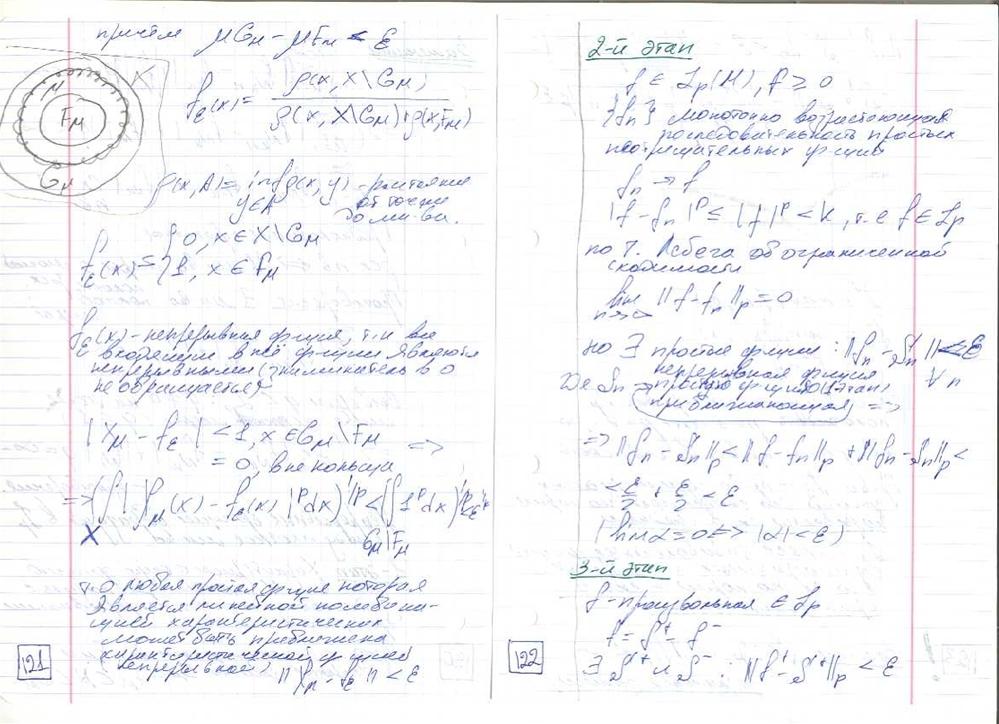 причём μG_M - μF_M < ε
f_ε(x) = ρ(x, X\G_M) / (ρ(x, X\G_M) + ρ(x, F_M))
M
F_M
G_M
X
ρ(x, A) = inf ρ(x, y) - расстояние
y∈A от точки
до мн-ва.
f_ε(x) = { 0, x ∈ X\G_M
1, x ∈ F_M
f_ε(x) - непрерывная функция, т.к все
входящие в неё функции являются
непрерывными (знаменатель в 0
не обращается)
|χ_M - f_ε| < 1, x ∈ G_M\F_M
= 0, вне кольца =>
=> (∫|χ_M(x) - f_ε(x)|^p dx)^{1/p} < (∫ 1^p dx)^{1/p}
X G_M\F_M
т.о любая простая функция которая
является линейной комбина-
цией характеристических
может быть приближена
характеристической функцией
непрерывной) ||χ_M - f_ε|| < ε
121
2-й этап
f ∈ L_p(M), f ≥ 0
{f_n} монотонно возрастающая
последовательность простых
неотрицательных функций
f_n → f
|f - f_n|^p ≤ |f|^p < k, т.е f ∈ L_p
по т. Лебега об ограниченной
сходимости
lim ||f - f_n||_p = 0
n→∞
но ∃ простые функции : ||f_n - S_n|| < ε
∀n
непрерывная функция
Где S_n простую функцию (1 этап)
приближающая =>
=> ||f_n - S_n||_p < ||f - f_n||_p + ||f_n - S_n||_p <
< ε/2 + ε/2 < ε
(lim α = 0 <=> |α| < ε)
3-й этап
f - произвольная ∈ L_p
f = f⁺ - f⁻
∃ S⁺ и S⁻ : ||f⁺ - S⁺||_p < ε
122